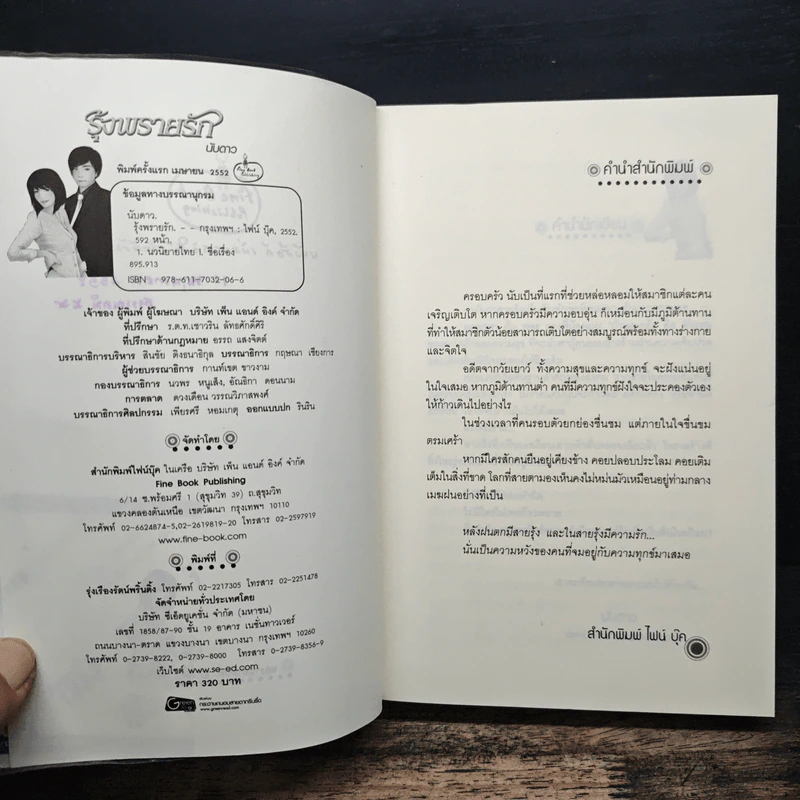 รุ้งพรายรัก
นับดาว
พิมพ์ครั้งแรก เมษายน 2552
ข้อมูลทางบรรณานุกรม
นับดาว.
รุ้งพรายรัก. - - กรุงเทพฯ : ไฟน์ บุ๊ค, 2552.
592 หน้า.
1. นวนิยายไทย I. ชื่อเรื่อง
895.913
ISBN 978-611-7032-06-6
เจ้าของ ผู้พิมพ์ ผู้โฆษณา บริษัท เพ็น แอนด์ อิงค์ จำกัด
ที่ปรึกษา ร.ต.ท.เชาวริน ลัทธศักดิ์ศิริ
ที่ปรึกษาด้านกฎหมาย อรรถ แสงจิตต์
บรรณาธิการบริหาร สินชัย ติงธนาธิกุล บรรณาธิการ กฤษณา เชียงการ
ผู้ช่วยบรรณาธิการ กานท์เขต ขาวงาม
กองบรรณาธิการ นวพร หนูเส็ง, อัณธิกา ดอนนาม
การตลาด ดวงเดือน วรรณวิภาสพงศ์
บรรณาธิการศิลปกรรม เพียรศรี หอมเกตุ ออกแบบปก รินริน
จัดทำโดย
สำนักพิมพ์ไฟน์บุ๊ค ในเครือ บริษัท เพ็น แอนด์ อิงค์ จำกัด
Fine Book Publishing
6/14 ซ.พร้อมศรี 1 (สุขุมวิท 39) ถ.สุขุมวิท
แขวงคลองตันเหนือ เขตวัฒนา กรุงเทพฯ 10110
โทรศัพท์ 02-6624874-5,02-2619819-20 โทรสาร 02-2597919
www.fine-book.com
พิมพ์ที่
รุ่งเรืองรัตน์พริ้นติ้ง โทรศัพท์ 02-2217305 โทรสาร 02-2251478
จัดจำหน่ายทั่วประเทศโดย
บริษัท ซีเอ็ดยูเคชั่น จำกัด (มหาชน)
เลขที่ 1858/87-90 ชั้น 19 อาคาร เนชั่นทาวเวอร์
ถนนบางนา-ตราด แขวงบางนา เขตบางนา กรุงเทพฯ 10260
โทรศัพท์ 0-2739-8222, 0-2739-8000 โทรสาร 0-2739-8356-9
เว็บไซต์ www.se-ed.com
ราคา 320 บาท
กระดาษถนอมสายตากรีนรี้ด
www.greenread.com
คำนำสำนักพิมพ์
ครอบครัว นับเป็นที่แรกที่ช่วยหล่อหลอมให้สมาชิกแต่ละคน
เจริญเติบโต หากครอบครัวมีความอบอุ่น ก็เหมือนกับมีภูมิต้านทาน
ที่ทำให้สมาชิกตัวน้อยสามารถเติบโตอย่างสมบูรณ์พร้อมทั้งทางร่างกาย
และจิตใจ
อดีตจากวัยเยาว์ ทั้งความสุขและความทุกข์ จะฝังแน่นอยู่
ในใจเสมอ หากภูมิต้านทานต่ำ คนที่มีความทุกข์ฝังใจจะประคองตัวเอง
ให้ก้าวเดินไปอย่างไร
ในช่วงเวลาที่คนรอบตัวยกย่องชื่นชม แต่ภายในใจขื่นขม
ตรมเศร้า
หากมีใครสักคนยืนอยู่เคียงข้าง คอยปลอบประโลม คอยเติม
เต็มในสิ่งที่ขาด โลกที่สายตามองเห็นคงไม่หม่นมัวเหมือนอยู่ท่ามกลาง
เมฆฝนอย่างที่เป็น
หลังฝนตกมีสายรุ้ง และในสายรุ้งมีความรัก...
นั่นเป็นความหวังของคนที่จมอยู่กับความทุกข์มาเสมอ
สำนักพิมพ์ ไฟน์ บุ๊ค